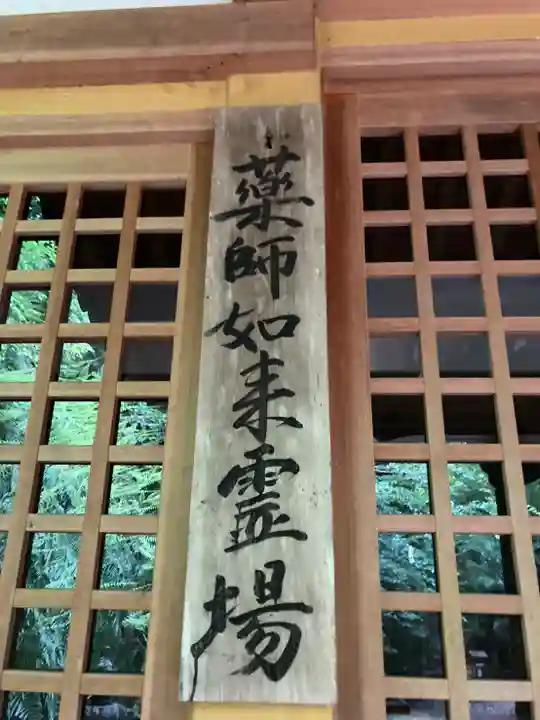 薬師如来霊場